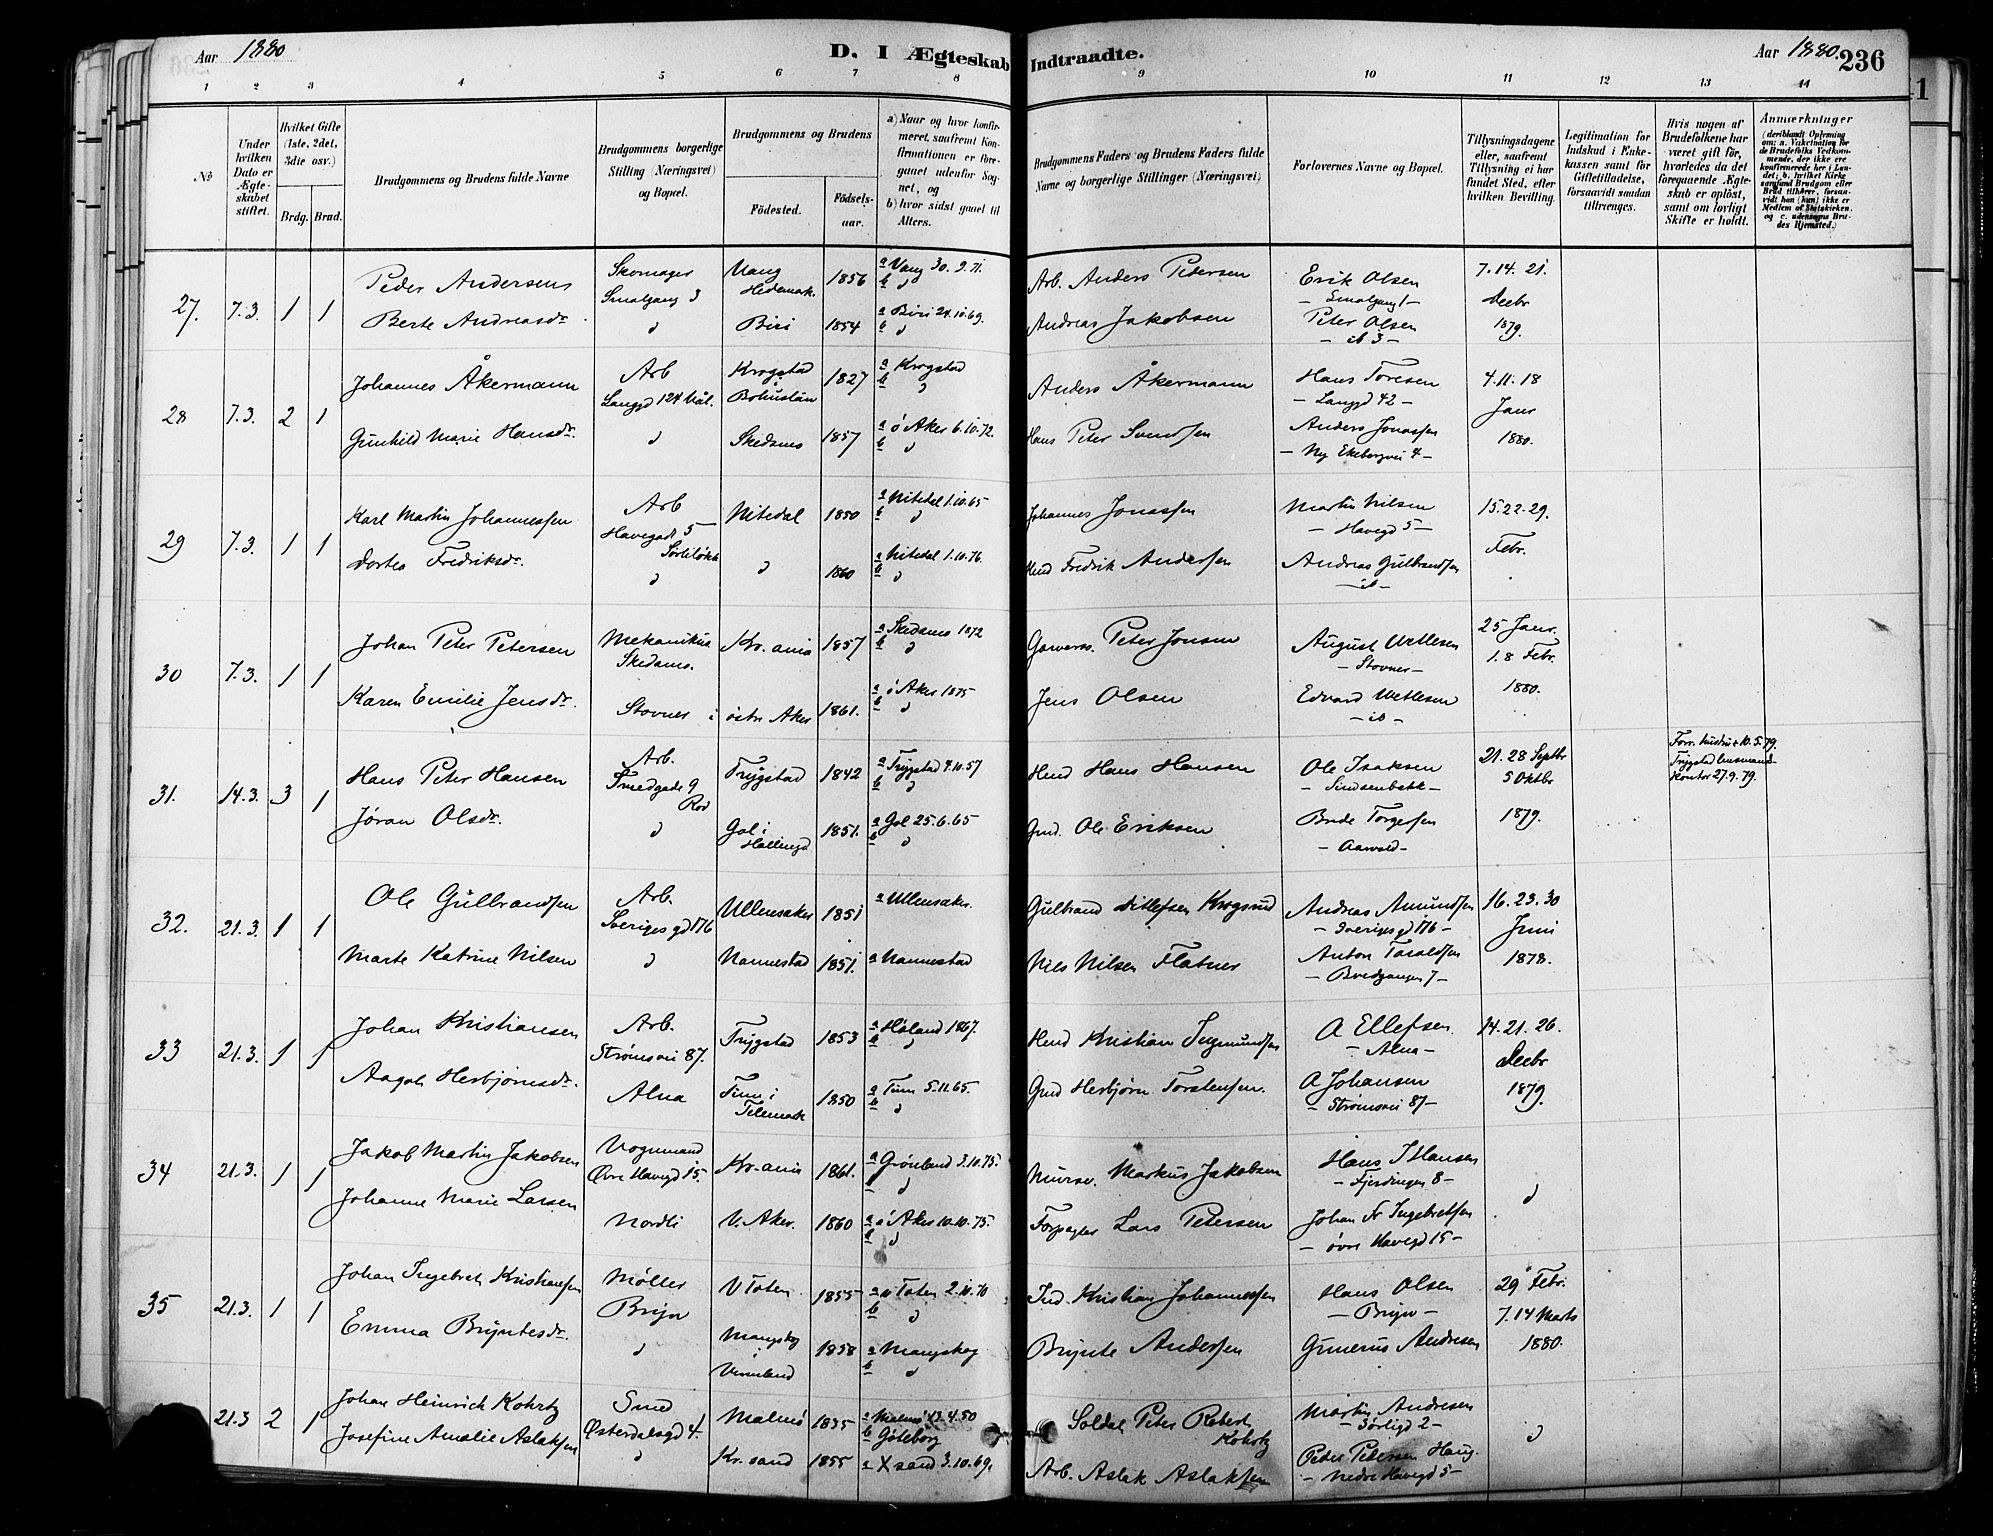 Aar 1880
D. I Ægteskab Indtraadte.
Aar 1880. 236
1 2 3 4 5 6 7 8 9 10 11 12 13 14
No
Under hvilken Dato er Ægteskabet stiftet.
Hvilket Gifte (1ste, 2det, 3die osv.)
Brdg. Brud.
Brudgommens og Brudens fulde Navne
Brudgommens borgerlige Stilling (Næringsvei) og Bopæl.
Brudgommens og Brudens
Fødested. Fødselsaar.
a) Naar og hvor konfirmeret, saafremt Konfirmationen er foregaaet udenfor Sognet, og
b) hvor sidst gaaet til Alters.
Brudgommens Faders og Brudens Faders fulde Navne og borgerlige Stillinger (Næringsvei)
Forlovernes Navne og Bopæl.
Tillysningsdagene eller, saafremt Tillysning ei har fundet Sted, efter hvilken Bevilling.
Legitimation for Indskud i Enkekassen samt for Giftetilladelse, forsaavidt saadan tiltrænges.
Hvis nogen af Brudefolkene har været gift før, hvorledes da det foregaaende Ægteskab er opløst, samt om lovligt Skifte er holdt.
Anmærkninger
(deriblandt Oplysning om: a. Vakcination for de Brudefolks Vedkommende, der ikke ere konfirmerede her i Landet; b. hvilket Kirkesamfund Brudgom eller Brud tilhører, forsaavidt han (hun) ikke er Medlem af Statskirken, og c. udensogns Brudes Hjemsted.)
27. 7.3. 1 1 Peder Andersen Skomager Smalgang 3 Vang Hedemark. 1856 a Vang 30.9.71. b " Arb. Anders Petersen Erik Olsen – Smalgang 1 – 7.14.21. Decbr 1879.
Berte Andreasdr. " Biri 1854 a Biri 24.10.69. b " Andreas Jakobsen Peter Olsen – ib 3 –
28 7.3. 2 1 Johannes Åkermann Arb Langgd 124 Vål. Krogstad Bohuslän 1827 a Krogstad b " Anders Åkermann Hans Toresen – Langgd 42 – 4.11.18 Janr 1880.
Gunhild Marie Hansdr. " Skedsmo 1857 a ö Aker 6.10.72. b " Hans Peter Svendsen Anders Jonassen – Ny Ekebergvei 4 –
29 7.3. 1 1 Karl Martin Johannessen Arb Havegade 5 Sørliløkk Nitedal 1850 a Nitedal 1.10.65 b " Johannes Jonassen Martin Nilsen – Havegd 5 – 15.22.29. Febr.
Dortea Fredriksdr. " " 1860 a Nitedal 1.10.76. b " Hmd Fredrik Andersen Andreas Gulbrandsen – ib –
30 7.3. 1 1 Johan Peter Petersen Mekanikus Skedsmo. Kr.ania 1857 a Skedsmo 1872 b " Garversv. Peter Jonsen August Wetlesen – Stovner – 25 Janr. 1.8 Febr. 1880.
Karen Emilie Jensdr. Stovner i östre Aker 1861. a ö Aker 1875 b " Jens Olsen Edvard Wetlesen – ib –
31. 14.3. 3 1 Hans Peter Hansen Arb. Smedgade 9 Rod Trygstad 1842 a Trygstad 4.10.57 b " Hmd Hans Hansen Ole Isaksen – Sindsenbakk – 21.28 Septbr 5 Oktbr 1879. Forr. hustru + 10.5.79. Trygstad lensmandskontor 27.9.79.
Jøran Olsdr. " Gol i Hallingd 1851. a Gol 25.6.65 b " Gmd. Ole Eriksen Brede Torgersen – Aarvold –
32. 21.3. 1 1 Ole Gulbrandsen Arb. Sverigesgd 176 Ullensaker 1851 a Ullensaker. Gulbrand Ditlefsen Krogsrud Andreas Amundsen – Sverigesgd 176 – 16.23.30 Juni 1878.
Marte Katrine Nilsen " Nannestad 1851. a Nannestad Nils Nilsen Flatner Anton Taraldsen – Bredgangen 7 –
33 21.3. 1 1 Johan Kristiansen Arb. Strømsvei 87. Trygstad 1853 a Høland 1867. b " Hmd Kristian Ingmundsen A Ellefsen. – Alna – 14.21.26. Decbr 1879.
Aagot Herbjørnsdr. Alna Tinn i Telemark 1850 a Tinn 5.11.65. b " Gmd Herbjørn Torstensen. A Johansen – Strømsvei 87 –
34 21.3. 1 1 Jakob Martin Jakobsen Vognmand Øvre Havegd 15. Kr.ania 1861. a Grønland 3.10.75. b " Murersv. Markus Jakobsen Hans T Hansen – Fjerdingen 8 – "
Johanne Marie Larsen Nordli V. Aker. 1860 a ö Aker 10.10.75. b " Forpagter Lars Petersen Johan Fr Ingebretsen – øvre Havegd 15 –
35 21.3. 1 1 Johan Ingebret Kristiansen Møller Bryn V Toten 1855 a V Toten 2.10.70 b " Ind. Kristian Johannessen Hans Olsen – Bryn – 29 Febr. 7.14 Marts 1880.
Emma Bryntesdr. " Mangskog i Vermland 1858 a Mangskog b " Brynte Andersen Gunerius Andresen
21.3 2 1 Johan Heinrich Kohrtz Smed Østerdalsgd 4. Malmö 1835 a Malmö 13.4.50 b Göteborg Soldat Peter Robert Kohrtz Martin Andresen – Sörligd 2 – "
Josefine Amalie Aslaksen " Kr.sand 1855 a X sand 3.10.69. Arb. Aslak Aslaksen Peder Petersen Haug – nedre Havegd 5 –